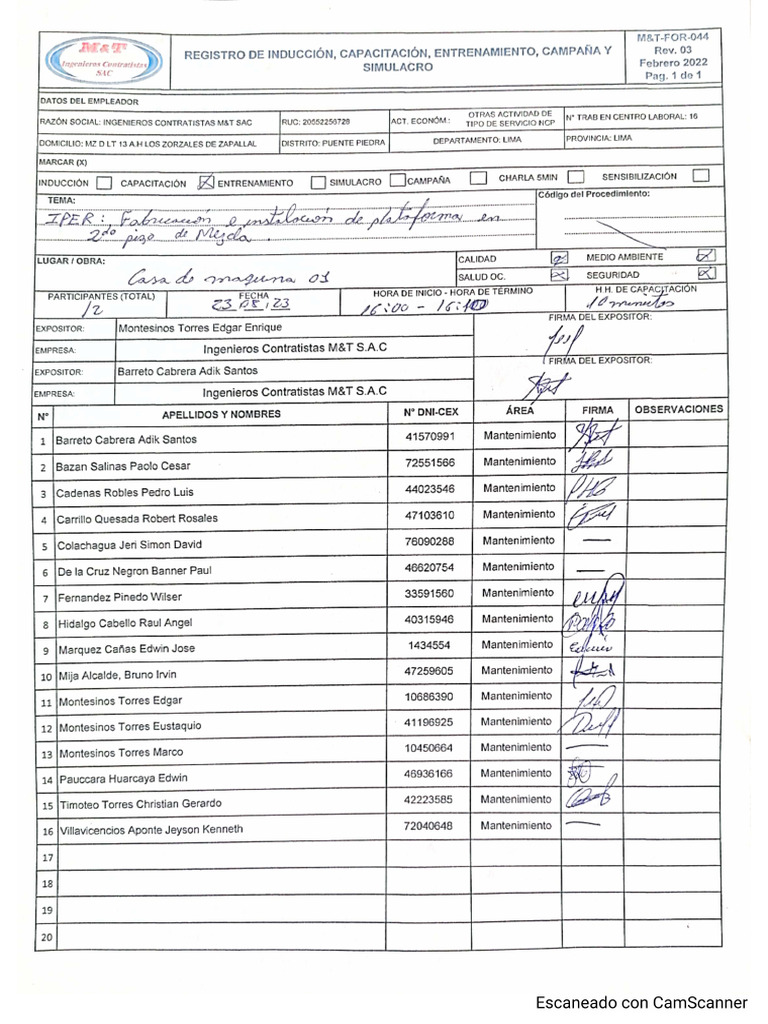 M&T
Ingenieros Contratistas
SAC
REGISTRO DE INDUCCIÓN, CAPACITACIÓN, ENTRENAMIENTO, CAMPAÑA Y
SIMULACRO
M&T-FOR-044
Rev. 03
Febrero 2022
Pag. 1 de 1
DATOS DEL EMPLEADOR
RAZÓN SOCIAL: INGENIEROS CONTRATISTAS M&T SAC RUC: 20552256728 ACT. ECONÓM.: OTRAS ACTIVIDAD DE TIPO DE SERVICIO NCP N° TRAB EN CENTRO LABORAL: 16
DOMICILIO: MZ D LT 13 A.H LOS ZORZALES DE ZAPALLAL DISTRITO: PUENTE PIEDRA DEPARTAMENTO: LIMA PROVINCIA: LIMA
MARCAR (X)
INDUCCIÓN CAPACITACIÓN X ENTRENAMIENTO SIMULACRO CAMPAÑA CHARLA 5MIN SENSIBILIZACIÓN
TEMA: Código del Procedimiento:
IPER: Fabricación e instalación de plataforma en
2do piso de Mezcla.
LUGAR / OBRA: CALIDAD X MEDIO AMBIENTE X
Casa de maquina 01 SALUD OC. X SEGURIDAD X
PARTICIPANTES (TOTAL) FECHA HORA DE INICIO - HORA DE TÉRMINO H.H. DE CAPACITACIÓN
12 23.08.23 16:00 - 16:10 10 minutos
EXPOSITOR: Montesinos Torres Edgar Enrique FIRMA DEL EXPOSITOR:
EMPRESA: Ingenieros Contratistas M&T S.A.C
EXPOSITOR: Barreto Cabrera Adik Santos FIRMA DEL EXPOSITOR:
EMPRESA: Ingenieros Contratistas M&T S.A.C
N° APELLIDOS Y NOMBRES N° DNI-CEX ÁREA FIRMA OBSERVACIONES
1 Barreto Cabrera Adik Santos 41570991 Mantenimiento
2 Bazan Salinas Paolo Cesar 72551566 Mantenimiento
3 Cadenas Robles Pedro Luis 44023546 Mantenimiento
4 Carrillo Quesada Robert Rosales 47103610 Mantenimiento
5 Colachagua Jeri Simon David 76090288 Mantenimiento —
6 De la Cruz Negron Banner Paul 46620754 Mantenimiento —
7 Fernandez Pinedo Wilser 33591560 Mantenimiento
8 Hidalgo Cabello Raul Angel 40315946 Mantenimiento
9 Marquez Cañas Edwin Jose 1434554 Mantenimiento
10 Mija Alcalde, Bruno Irvin 47259605 Mantenimiento
11 Montesinos Torres Edgar 10686390 Mantenimiento
12 Montesinos Torres Eustaquio 41196925 Mantenimiento
13 Montesinos Torres Marco 10450664 Mantenimiento —
14 Pauccara Huarcaya Edwin 46936166 Mantenimiento
15 Timoteo Torres Christian Gerardo 42223585 Mantenimiento
16 Villavicencios Aponte Jeyson Kenneth 72040648 Mantenimiento —
17
18
19
20
Escaneado con CamScanner